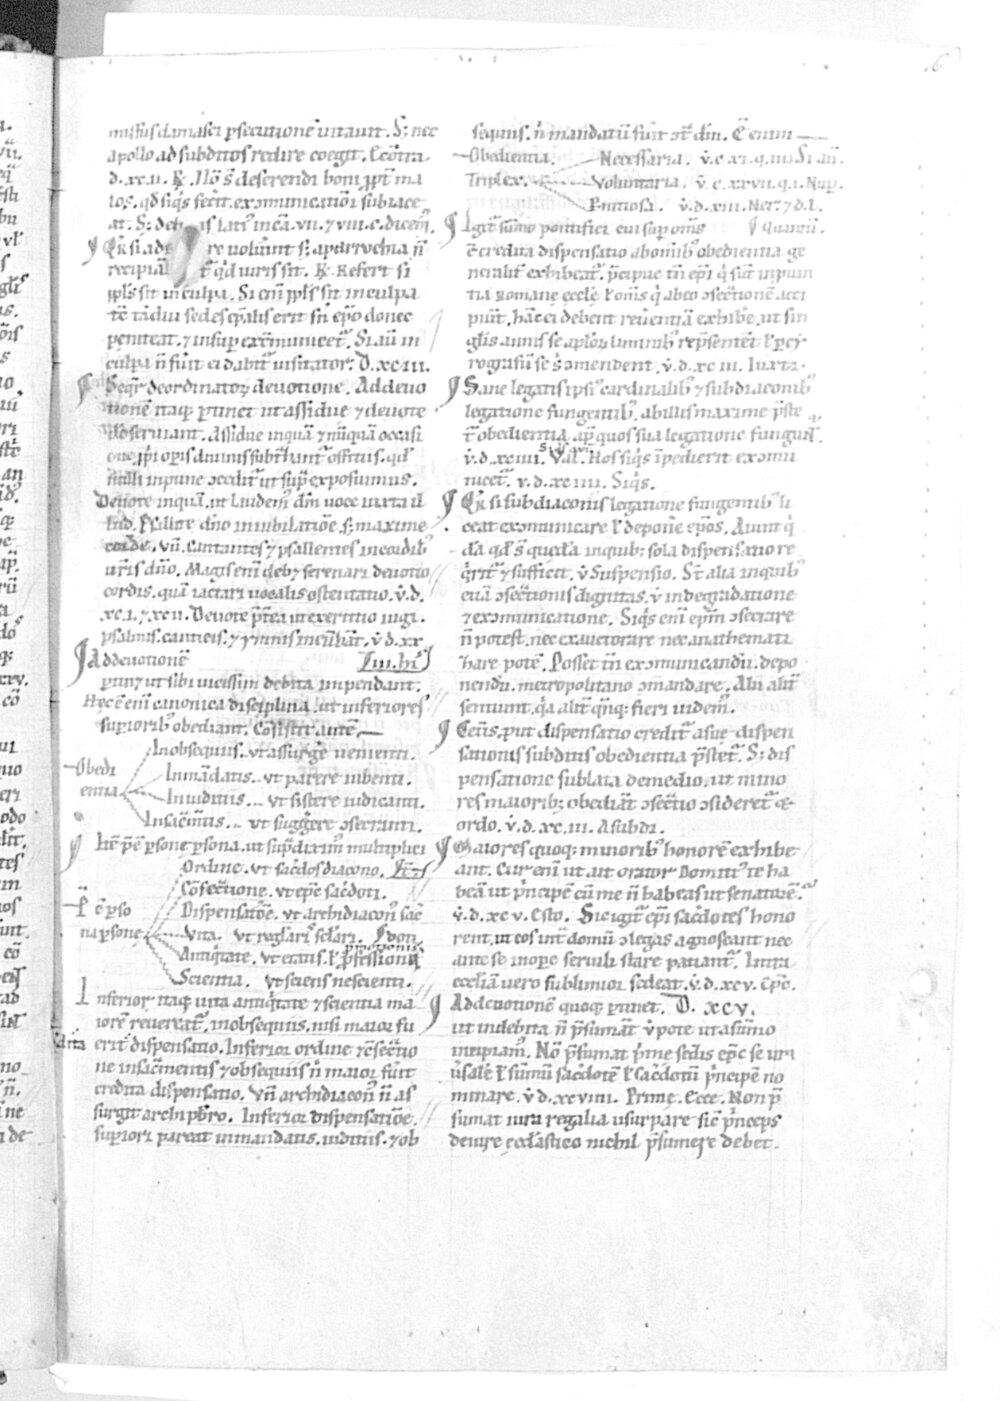 6
missus damasci ꝑsecutionē uitauit. S; nec
apollo ad subditos redire coegit. Ecōtra.
d. xc.ii. R̄. Nō ē deserendi boni ꝓpt̄ ma
los. qđ siq̄s fecit. excōmunicatiōi subiace
at. S; deb is lat᷒ in cā. vii. ⁊ viii. c. dicem᷒.
re uoluerint
recipi qđ iuris sit. R̄. Refert si
ipl̄s sit in culpa. Si em̄ ipl̄s sit in culpa
tē tādiu sedes ep̄alis erit sn̄ ep̄o donec
peniteat. ⁊ insup excōmunicet᷑. Si aū in
culpa n̄ fuit ei dabit᷑ uisitator. D. xc.iii.
Seqr̄ de ordinatoꝝ deuotione. Ad deuo
tionē itaq; ꝑtinet ut assidue ⁊ deuote
deseruiant. Assidue inquā ⁊ nūquā occasi
one ꝓprii oꝑis diuinis subt̄hant᷑ offitiis. qđ
nulli inpune
Deuote inquā. ut laudem᷒ dn̄m uoce iuxta il
lud. Psallite dn̄o in iubilatiōe. s; maxime
corde. vn̄. Cantantes ⁊ psallentes in cordib᷒
ur̄is dn̄o. Magis eni᷒ deb; serenari deuotio
cordis. quā iactari uocalis ostentatio. v̄. d.
xc.i. ⁊ xc.ii. Deuote p̄t̄ea ut exercitio iugi.
psalmis. canticis. ⁊ ymnis v̄. d. xx
Ad deuotionē iii. hi᷒
ꝑtin; ut sibi uicissim debita inpendant.
Hec ē eni᷒ canonica disciplina. ut inferiores
supiorib᷒ obediant. Cōsistit autē
In obsequiis. vt assurge᷑ uenienti.
Obedi
entia
In mādatis. vt parere iubenti.
In iuditiis. vt sistere iudicanti.
In sac̄mētis. vt suggere ɔsecranti.
Itē p̄ē ꝑsone ꝑsona. ut sup̄ diximus multiplici
Ordine. vt sac̄dos diacono.
Cōsectione. vt ep̄c sac̄doti.
Dispensatōe. vt archidiacon᷒ sac̄
P̄ ē ꝑso
na ꝑsone
Vita. vt reglaris sclari.
Antiq̄tate. vt etatis. l̄ ꝓfessionis
Scientia. vt sciens nescienti.
Inferior itaq; uita antiq̄tate ⁊ scientia ma
iorē reuereat᷑. in obsequiis. nisi maior fu
erit dispensatio. Inferior ordine ⁊ ɔsectio
ne in sac̄mentis ⁊ obsequiis n̄ maior fu̇it
credita dispensatio. Vn̄ archidiacon᷒ n̄ as
surgit archip̄bro. Inferior dispensatiōe.
supiori pareat in mandatis. iuditiis. ⁊ ob
sequiis. n̄ mandatū fuit ɔt̄ dm̄. Ē enim
Obedientia
Triplex.
Necessaria. v̄. c. xi. q. iii. Si aū.
Voluntaria. v̄. c. xxvii. q. i. Nup.
Ꝑnitiosa. v̄. d. xiii. Ner. ⁊ d. l.
Igit᷑ sūmo pontifici cui sup om̄s quantū
ē credita dispensatio ab omib᷒ obedientia ge
neralit̄ exhibeat᷑. p̄cipue tn̄ ep̄i q̄ sūt in ꝓuin
tia romane ecclē l̄ om̄s q̄ ab eo ɔsectionē acci
piūt. hāc ei debent reuerentiā exhibe᷑. ut sin
glīs annis se aploꝝ liminib᷒ rep̄sentēt l̄ ꝑ cy
rografū se ɔmendent. v̄. d. xc iii. Iuxta.
Sane legatis ipsi᷒ cardinalib᷒ ⁊ subdiaconib᷒
legatione fungentib᷒. ab illis maxime p̄ste
t᷑ obedientia. ap̄ quos sua legatione fungunt᷑.
v̄. d. xciiii. Vał. Hos siq̄s īpedierit excōmu
nicet᷑. v. d. xc iiii. Siq̄s.
Q̄r si subdiaconis legatione fungentib᷒ li
ceat excōmunicare l̄ deponē ep̄os. Aiunt q̄
dā qđ ē quedā in quib; sola dispensatio re
q̄rit᷑ ⁊ sufficit. v̄ Suspensio. St̄ alia in quib᷒
etiā ɔsectionis dignitas. v̄ in degradatione
⁊ excōmunicatione. Siq̄s eni᷒ ep̄m ɔsecrare
n̄ potest. nec exauctorare nec anathemati
ȝare potē. Posset tn̄ excōmunicandū. depo
nendū. metropolitano ɔmandare. Alii alit̄
sentiunt. q̄a alit̄ qn̄q; fieri uidem᷒.
Cet̄is. put dispensatio credit᷑ a sue dispen
sationis subditis obedientia p̄stet᷑. S; dis
pensatione sublata de medio. ut mino
res maiorib; obediāt ɔsectio ɔsideret᷑ ⁊
ordo. v̄. d. xc.iii. A subdi.
Maiores quoq; minorib᷒ honorē exhibe
ant. Cur eni᷒ ut ait orator Domiti᷒ te ha
beā ut p̄ncipē cū me n̄ habeas ut senatorē.
v̄. d. xc v. Esto. Sic igit᷑ ep̄i sac̄dotes hono
rent. ut eos int̄ domū ɔlegas agnoscant nec
ante se in ope seruili stare patiant᷑. Intra
eccliam uero sublimior sedeat. v̄. d. xcv. Ep̄c.
Ad deuotionē quoq; ꝑtinet. D. xcv.
ut indebita n̄ p̄sumāt v̄ pote ut a sūmo
incipiam᷒. Nō p̄sumat p̄me sedis ep̄c se uni
u̇salē l̄ sūmū sac̄dotē l̄ sac̄dotū p̄ncipē no
minare. v̄ d. xcviiii. Prime. Ecce. Non p̄
sumat iura regalia usurpare sic̄ p̄nceps
de iure ecclastico nichil p̄sumere debet.